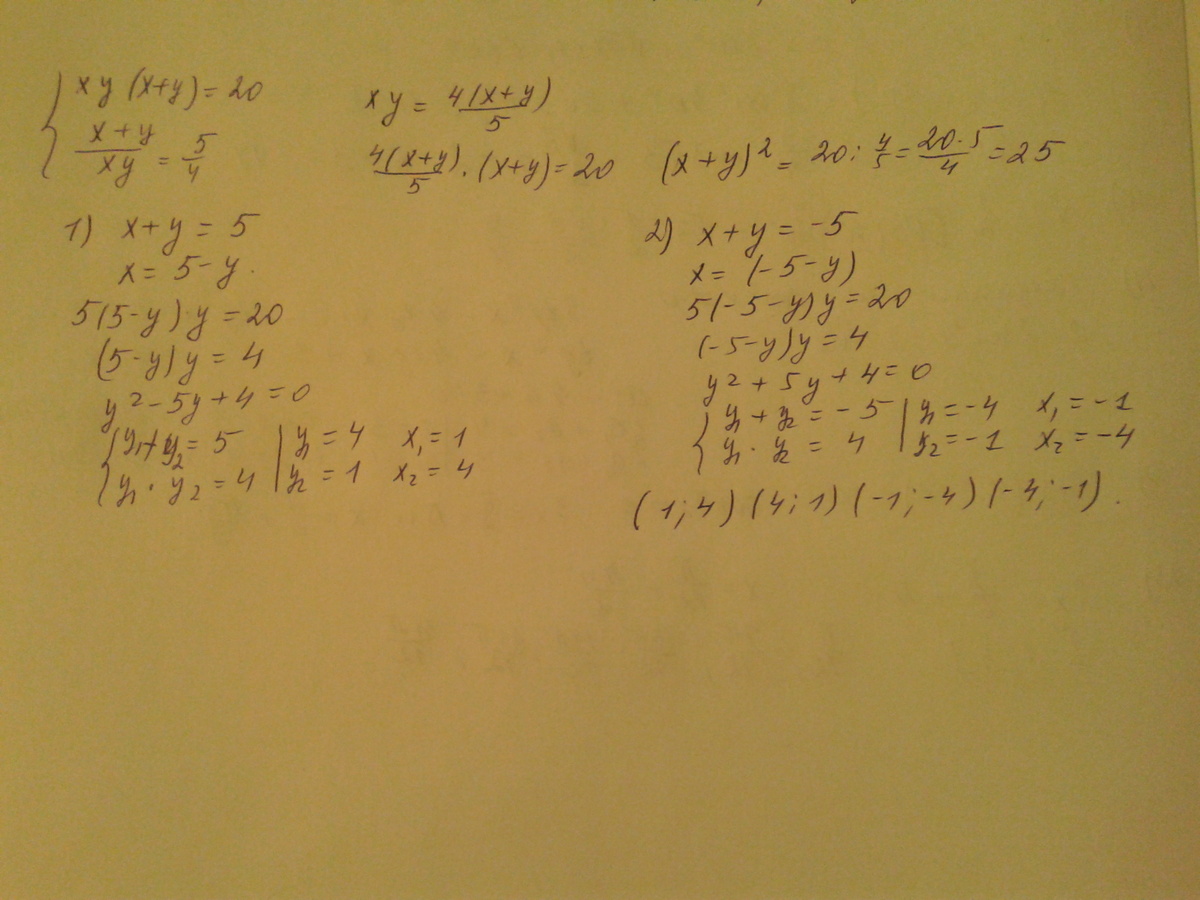 { xy (x+y) = 20
(x+y)/(xy) = 5/4
xy = 4(x+y)/5
4(x+y)/5 · (x+y) = 20
(x+y)² = 20 : 4/5 = 20·5/4 = 25
1) x+y = 5
x = 5-y.
5(5-y)y = 20
(5-y)y = 4
y²-5y+4=0
{ y₁+y₂ = 5 | y₁ = 4 x₁ = 1
y₁ · y₂ = 4 | y₂ = 1 x₂ = 4
2) x+y = -5
x = (-5-y)
5(-5-y)y = 20
(-5-y)y = 4
y²+5y+4=0
{ y₁+y₂ = -5 | y₁ = -4 x₁ = -1
y₁ · y₂ = 4 | y₂ = -1 x₂ = -4
(1;4) (4;1) (-1;-4) (-4;-1).